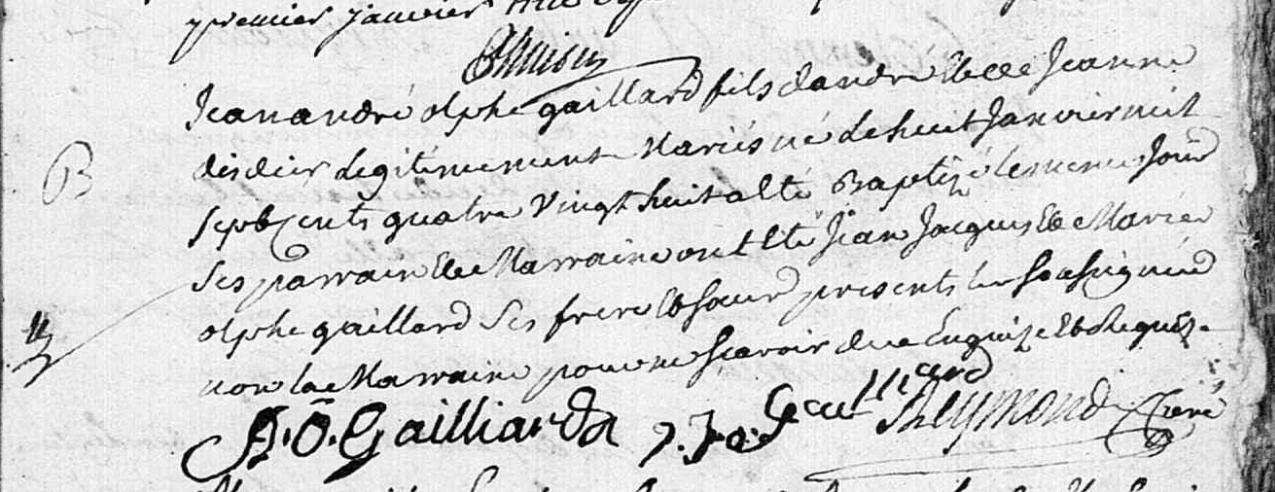 premier janvier
B
Jean andré olphe gaillard fils d'andré et de Jeanne
disdier legitimement mariés né le huit Janvier mil
sept cents quatre vingt huit a été Baptizé le meme Jour
ses parrain et Marraine ont été Jean Jacques et Marie
olphe gaillard ses frere et soeur presents les soussignés
non la Marraine pour ne scavoir de ce Enquize et Requize.
A. O. Gailliard J. J. O. Gaulliard Reymond Curé